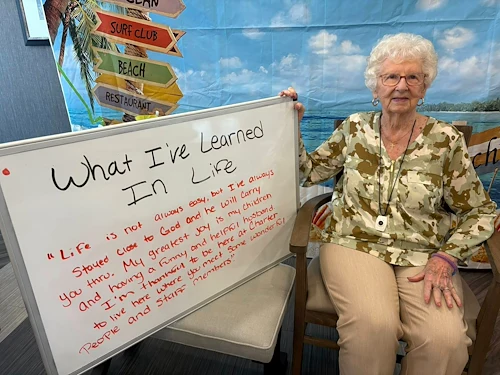 SURF CLUB
BEACH
RESTAURANT
What I've Learned
In Life
"Life is not always easy, but I've always
Stayed close to God and he will carry
you thru. My greatest joy is my children
and having a funny and helpful husband.
I'm thankful to be here at Charter
to live here where you meet some wonderful
People and Staff members"